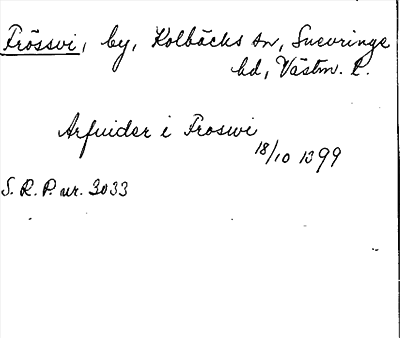 Frössvi, by, Kolbäcks sn, Snevringe
hd, Västm. l.
Arfvider i Froswi
18/10 1399
S. R. P. nr. 3033